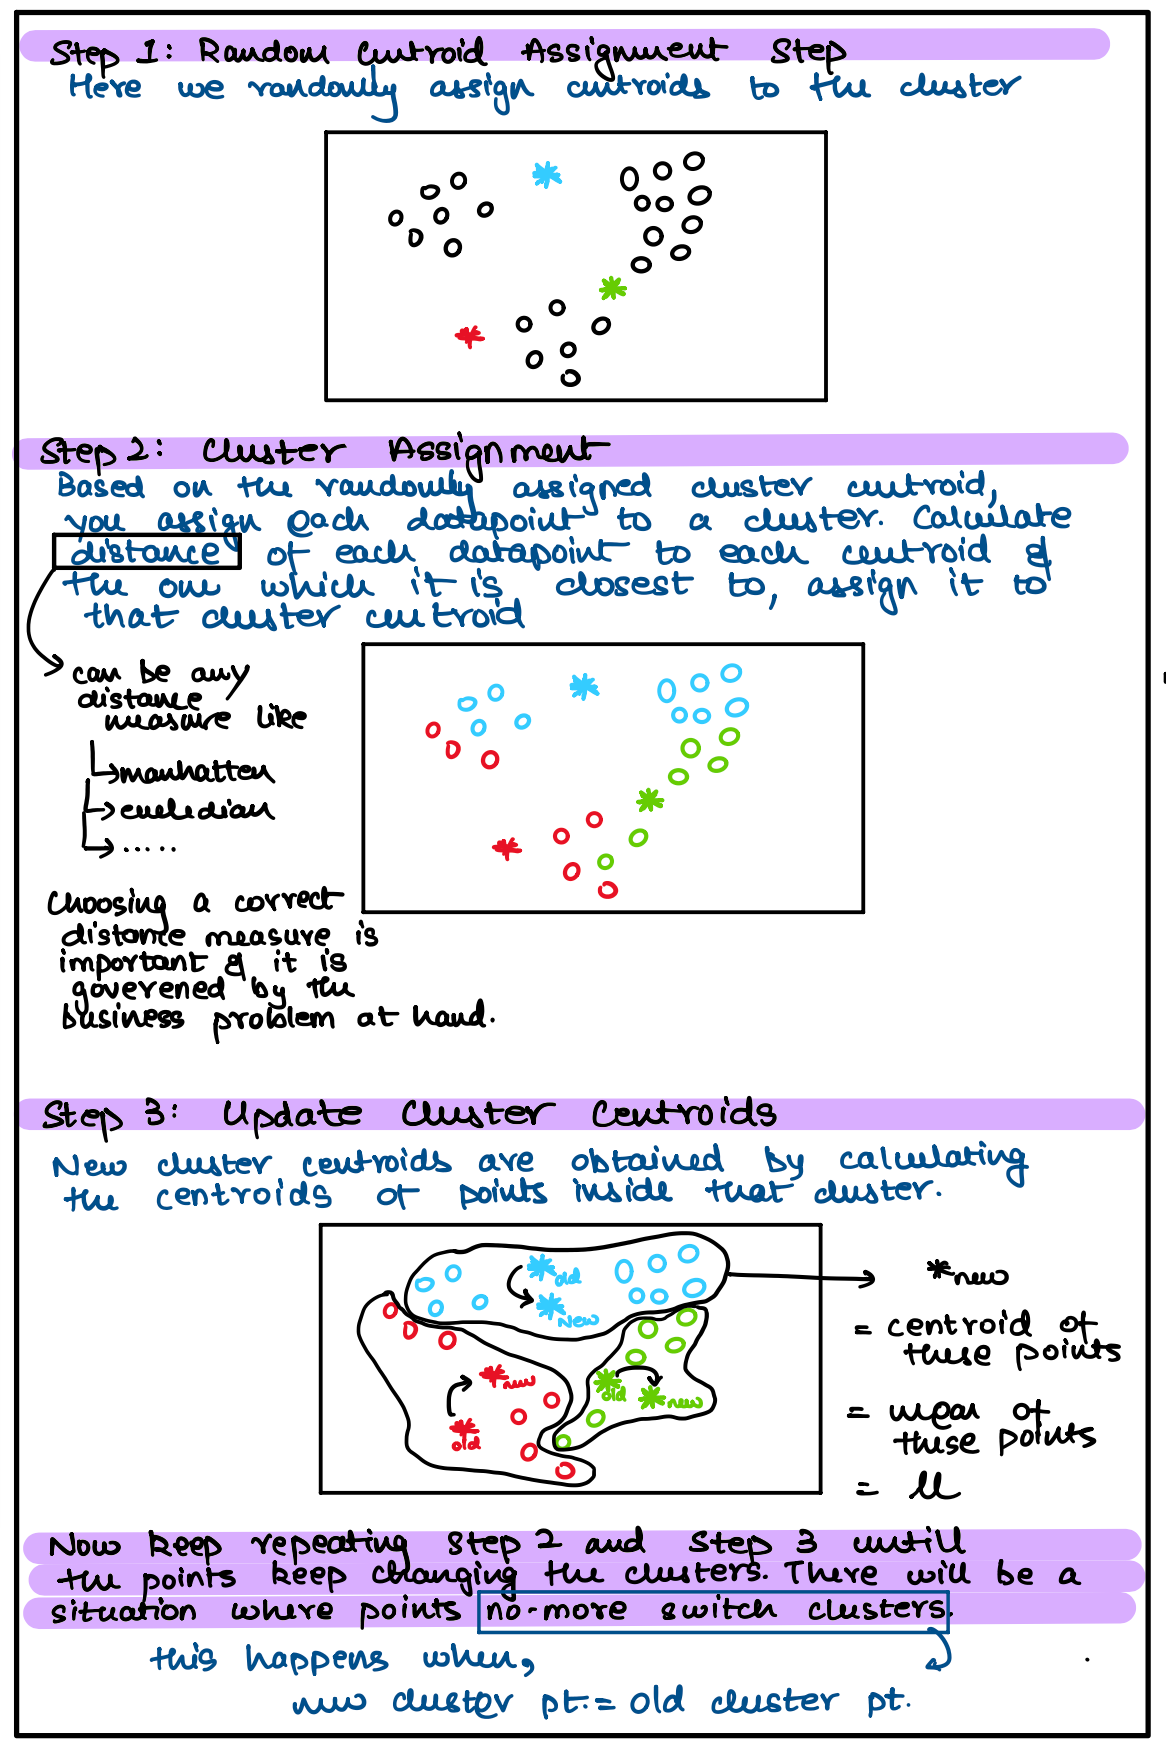 Step 1: Random Centroid Assignment Step
Here we randomly assign centroids to the cluster
Step 2: Cluster Assignment
Based on the randomly assigned cluster centroid,
you assign each datapoint to a cluster. Calculate
distance of each datapoint to each centroid &
the one which it is closest to, assign it to
that cluster centroid
can be any
distance
measure like
manhatten
eucledian
.....
Choosing a correct
distance measure is
important & it is
goverened by the
business problem at hand.
Step 3: Update Cluster Centroids
New cluster centroids are obtained by calculating
the centroids of points inside that cluster.
old
New
new
old
old
new
*new
= centroid of
these points
= mean of
these points
= μ
Now keep repeating Step 2 and Step 3 untill
the points keep changing the clusters. There will be a
situation where points no-more switch clusters.
this happens when,
new cluster pt. = old cluster pt.